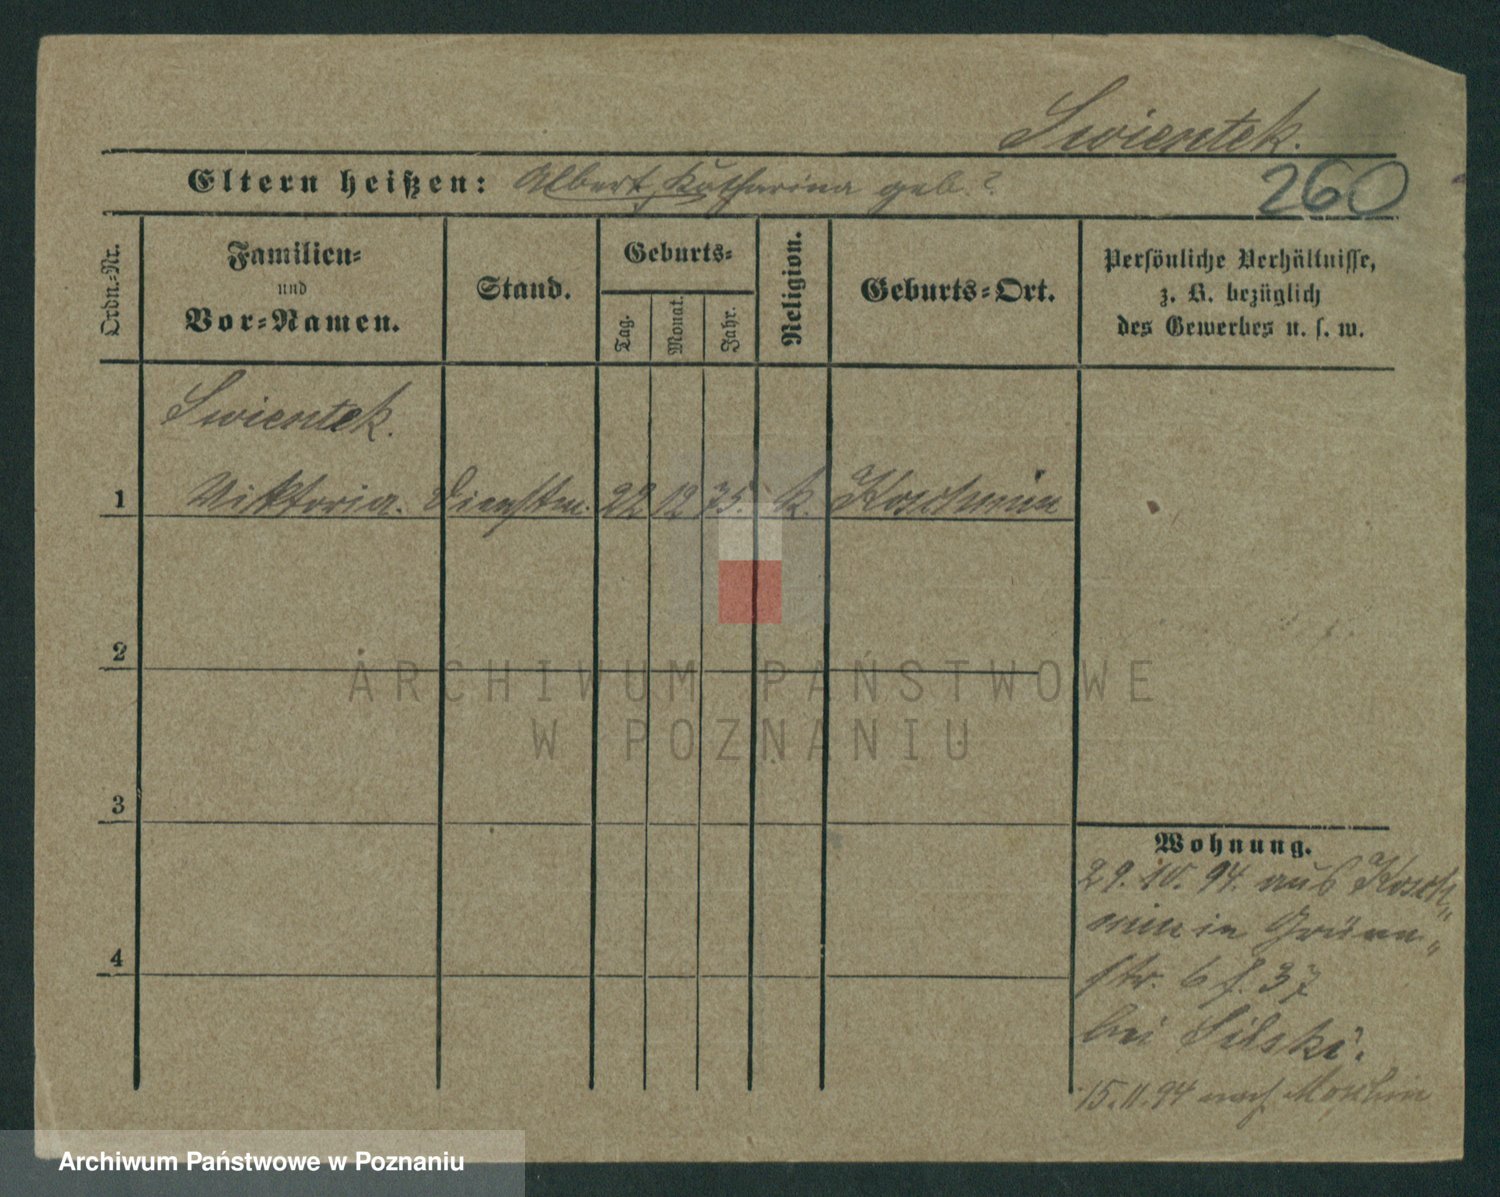 Swientek.
Eltern heißen: Albert, Katharina geb.?
260
Ordn.-Nr.
Familien-
und
Vor-Namen.
Stand.
Geburts-
Tag.
Monat.
Jahr.
Religion.
Geburts-Ort.
Persönliche Verhältnisse,
z. B. bezüglich
des Gewerbes u. s. w.
Swientek.
1 Viktoria. Dienstm. 22 12 75. k. Koschmin
2
3
4
Wohnung.
29. 10. 94. aus Kosch„
min in Grünen„
str. 6 f. 37
bei
15. 11. 94 nach
ARCHIWUM PAŃSTWOWE
W POZNANIU
Archiwum Państwowe w Poznaniu